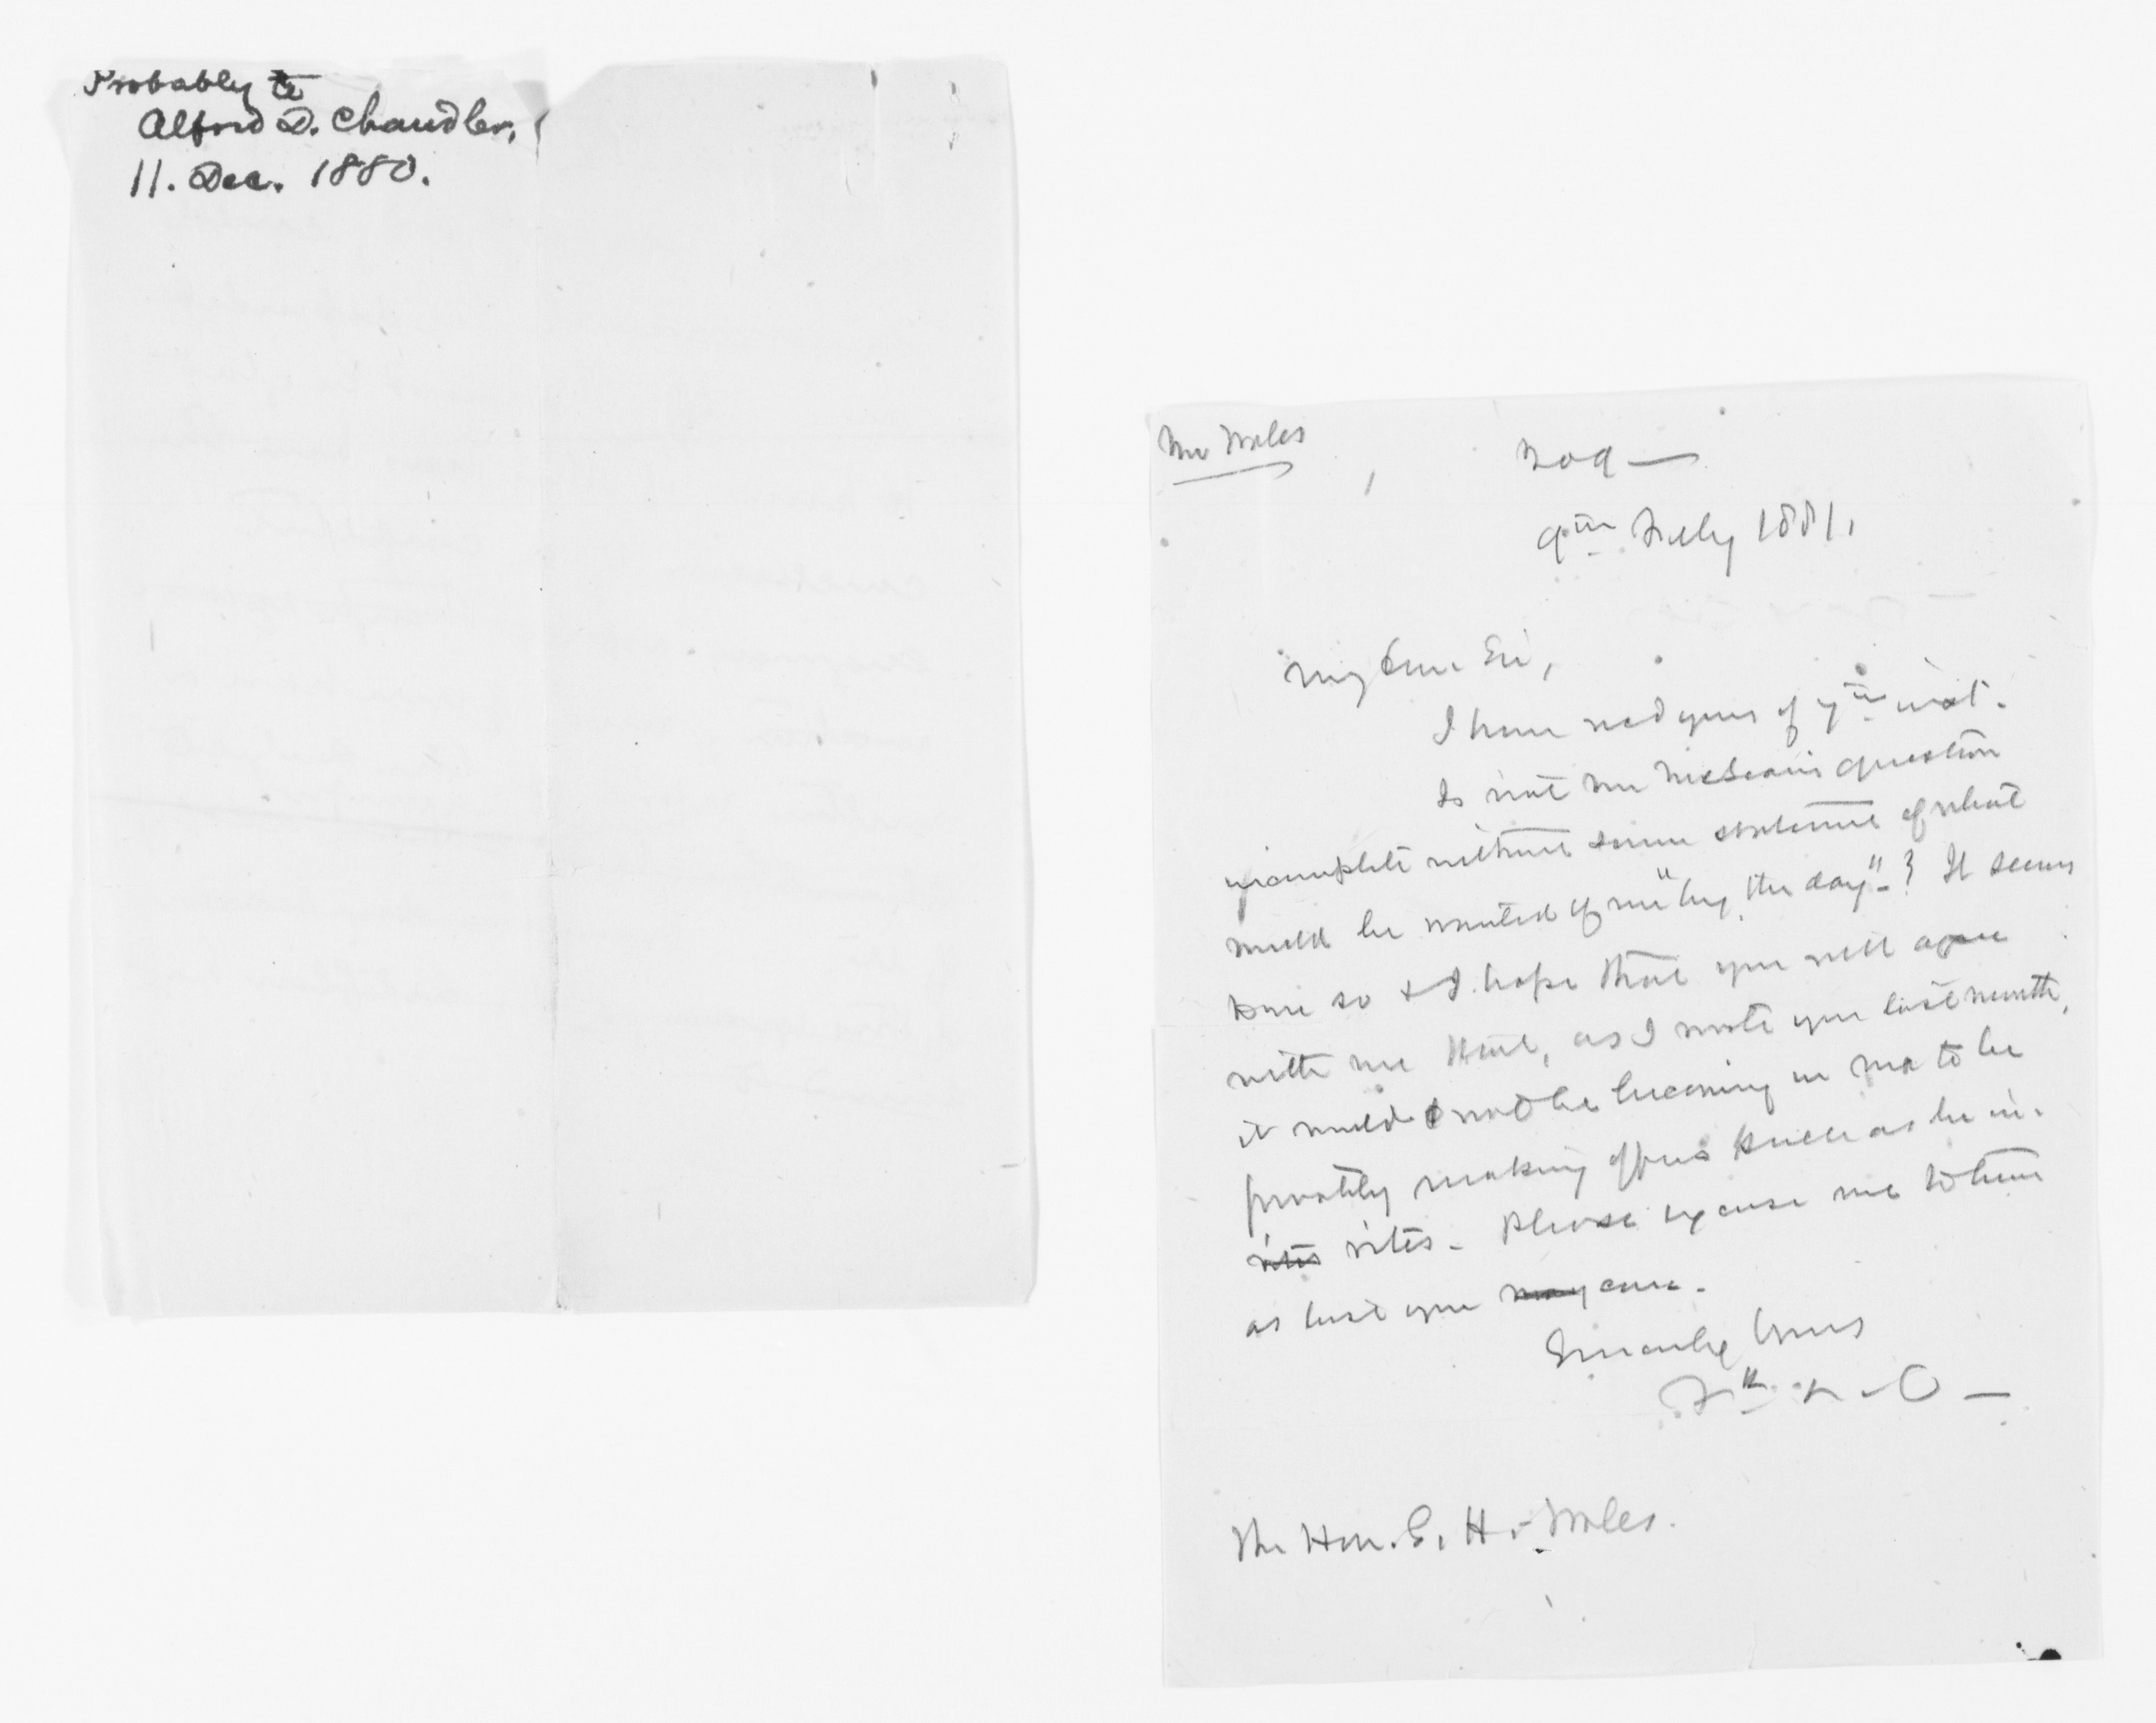 Probably to
Alfred D. Chandler,
11. Dec. 1880.
Mr Wales
209 —
9th July 1881.
My dear Sir,
I have read yours of 7th inst.
Is not Mr question
incomplete without some statement of what
would be wanted of me "by the day"? It seems
to me so & I hope that you will agree
with me that, as I wrote you last month,
it would not be becoming in me to be
privately making offers such as he in-
vites vites. Please excuse me to him
as best you may can.
Sincerely Yours
The Hon. S. H. Wales.